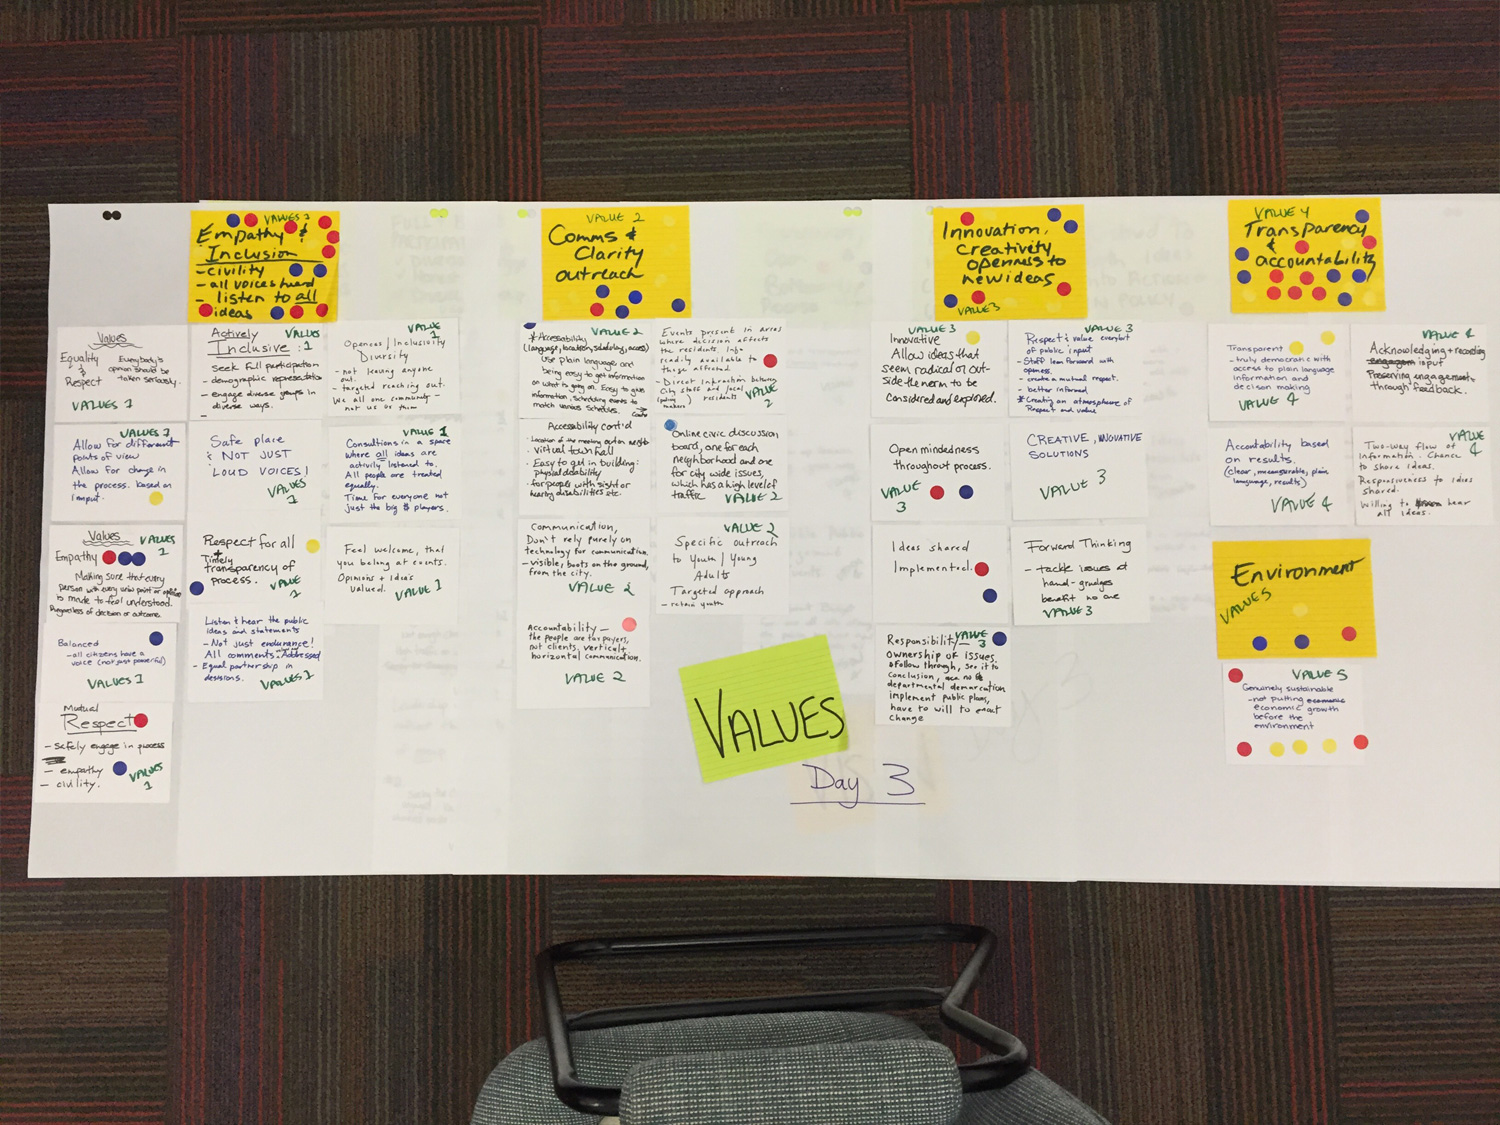 VALUES 1
Empathy &
Inclusion
- civility
- all voices heard
- listen to all
ideas
Values
Equality
&
Respect
Everybody's
opinion should be
taken seriously.
VALUES 1
VALUES 1
Allow for different
points of view
Allow for change in
the process. based on
input
Values
VALUES 1
Empathy
Making sure that every
person with every
is made to feel understood.
Regardless of decision or outcome.
Balanced
- all citizens have a
voice (not just powerful)
VALUES 1
Mutual
Respect
- safely engage in process
- empathy
- civility.
VALUES 1
Actively
Inclusive :
VALUES 1
Seek full participation
- demographic representation
- engage diverse groups in
diverse ways.
-
Safe place
& NOT JUST
LOUD VOICES!
VALUES 1
Respect for all
+
Timely
transparency of
process.
VALUE 1
Listen & hear the public
ideas and statements
- Not just endurance!
All comments Addressed
- Equal partnership in
decisions.
VALUES 1
VALUE 1
Openess / Inclusivity
Diversity
- not leaving anyone
out.
- targeted reaching out.
We all one community -
not us or them
VALUE 1
Consultions in a space
where all ideas are
activily listened to.
All people are treated
equally.
Time for everyone not
just the big $ players.
Feel welcome, that
you belong at events.
Opinions + Idea's
valued.
VALUE 1
VALUE 2
Comms &
Clarity
outreach
VALUE 2
* Accessability
(language, location, scheduling, access)
Use plain language and
being easy to get information
on what is going on. Easy to give
information, scheduling events to
match various schedules.
Accessability cont'd
- Virtual town hall
- Easy to get in building:
physical disability
- for people with sight or
hearing disabilities etc.
Communication,
Don't rely purely on
technology for communication.
- visible; boots on the ground,
from the city.
VALUE 2
Accountability -
the people are taxpayers,
not clients, vertical +
horizontal communication.
VALUE 2
Events present in areas
where decision affects
the residents. Info
readily available to
those affected.
- Direct interaction between
City staff and local
(policy makers) residents
VALUE 2
Online civic discussion
board, one for each
neighborhood and one
for city wide issues,
which has a high level of
traffic
VALUE 2
VALUE 2
Specific outreach
to Youth / Young
Adults
Targeted approach
- retain youth
VALUES
Day 3
Innovation,
creativity
openness to
new ideas
VALUE 3
VALUE 3
Innovative
Allow ideas that
seem radical or out-
side the norm to be
considered and explored.
Open mindedness
throughout process.
VALUE 3
Ideas shared
Implemented.
VALUE 3
Responsibility
ownership of issues,
& follow through, see it to
conclusion,
departmental demarcation
implement public plans,
have to will to enact
change
VALUE 3
Respect & value everyone
of public input
- Staff lean forward with
openess.
- create a mutual respect.
- better informed
* Creating an atmosphere of
Respect and value
CREATIVE, INNOVATIVE
SOLUTIONS
VALUE 3
Forward Thinking
- tackle issues at
hand - grudges
benefit no one
VALUE 3
VALUE 4
Transparency
&
accountability
Transparent
- truly democratic with
access to plain language
information and
decision making
VALUE 4
Accountability based
on results.
(clear, measurable, plain
language, results)
VALUE 4
VALUE 4
Acknowledging + recording
input
Preserving engagement
through feedback.
VALUE 4
Two-way flow of
Information. Chance
to share ideas.
Responsiveness to ideas
shared.
Willing to hear
all ideas.
Environment
VALUE 5
VALUE 5
Genuinely sustainable
- not putting
economic growth
before the
environment